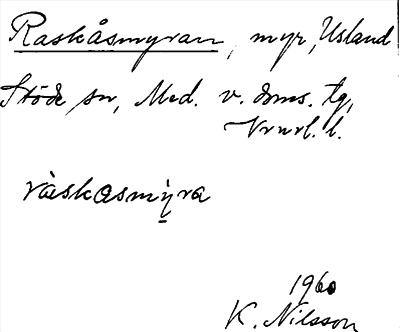 Raskåsmyran, myr, Usland
Stöde sn, Med. v. dms. tg,
l.
råskasmyra
1960
K. Nilsson